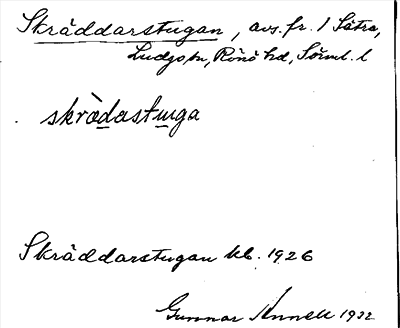 Skräddarstugan, avs. fr. 1 Sätra,
Ludgo sn, Rönö hd, Söml. l
skrædastuga
Skräddarstugan kb. 1926
Gunnar Annell 1932